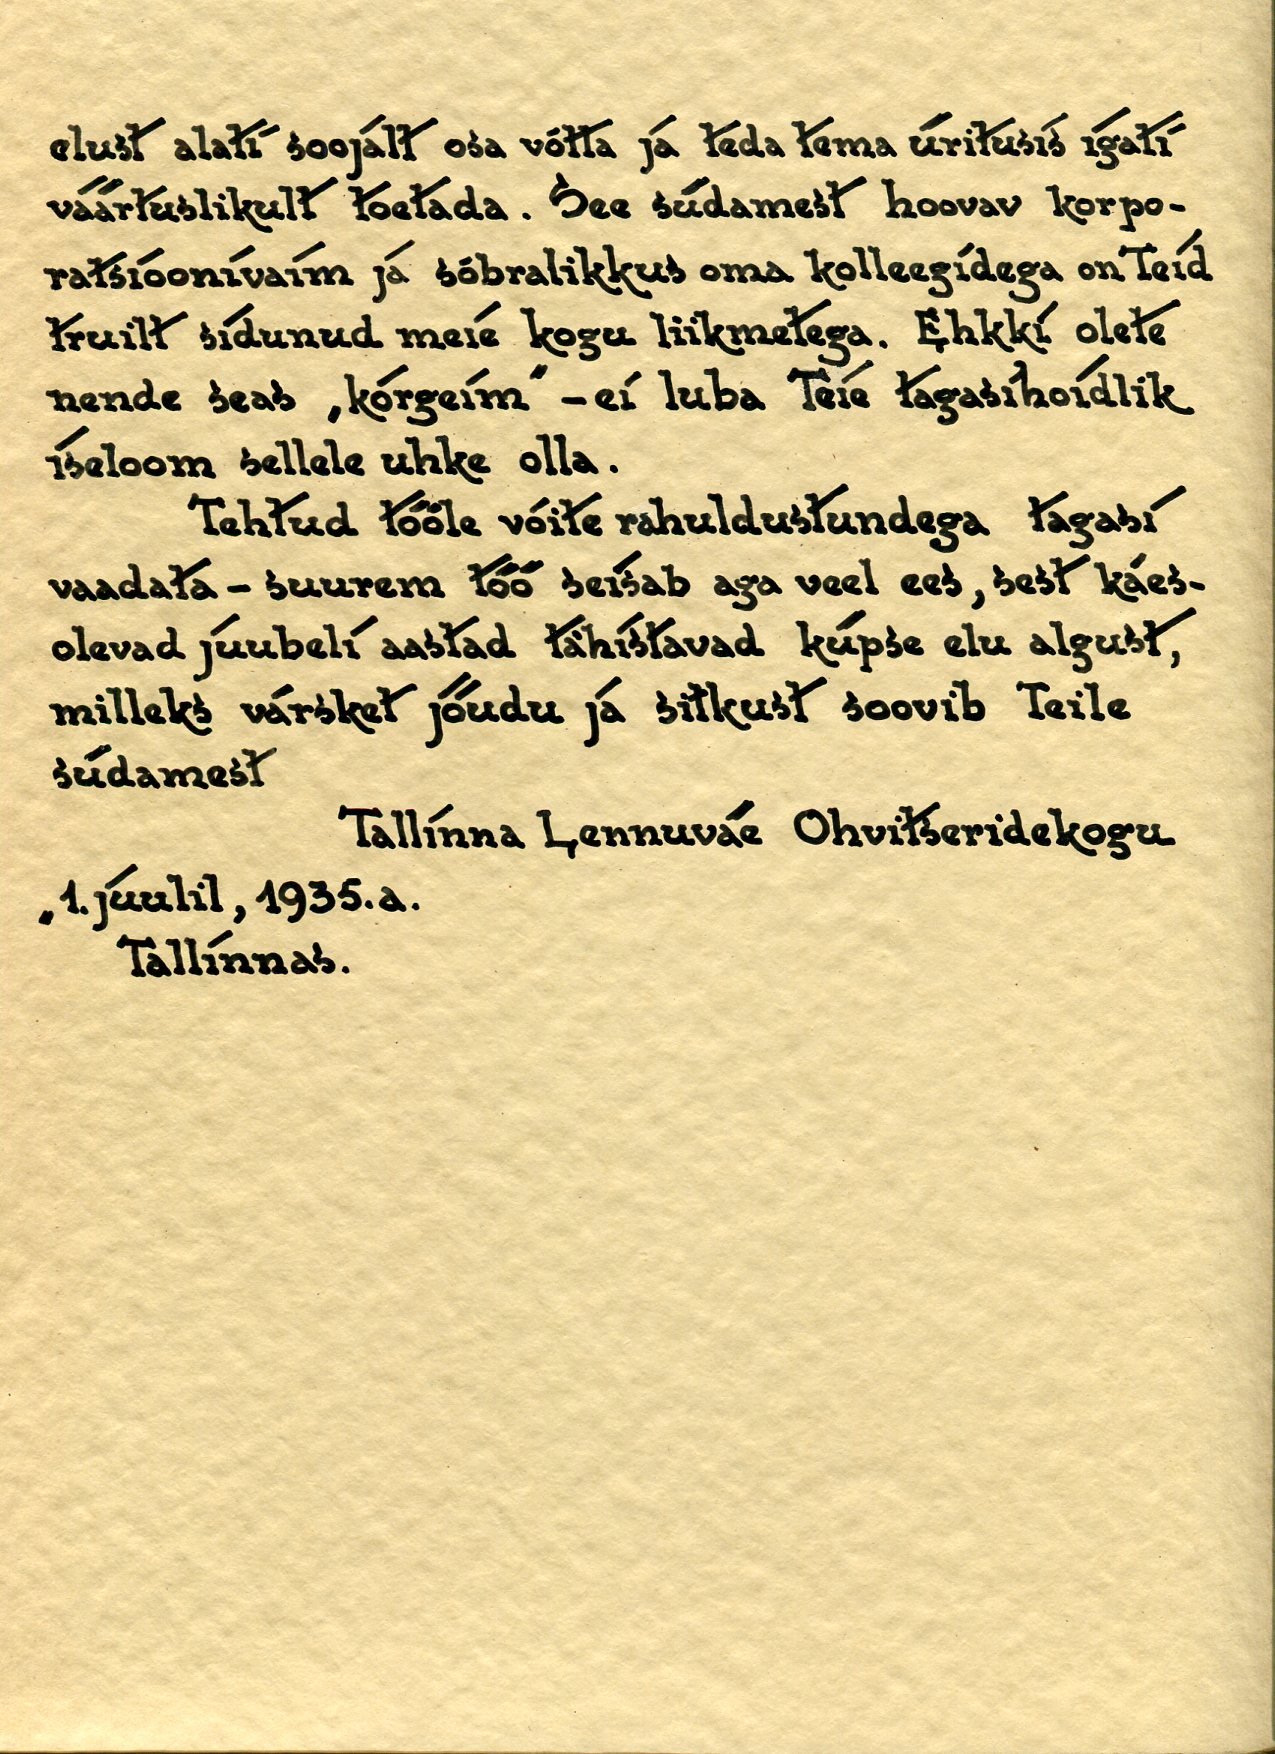 elust alati soojalt osa võtta ja teda tema üritusis igati
väärtuslikult toetada. See südamest hoovav korpo-
ratsioonivaim ja sõbralikkus oma kolleegidega on Teid
truilt sidunud meie kogu liikmetega. Ehkki olete
nende seas „kõrgeim” – ei luba Teie tagasihoidlik
iseloom sellele uhke olla.
Tehtud tööle võite rahuldustundega tagasi
vaadata – suurem töö seisab aga veel ees, sest käes-
olevad juubeli aastad tähistavad küpse elu algust,
milleks värsket jõudu ja sitkust soovib Teile
südamest
Tallinna Lennuväe Ohvitseridekogu
„1. juulil, 1935. a.
Tallinnas.